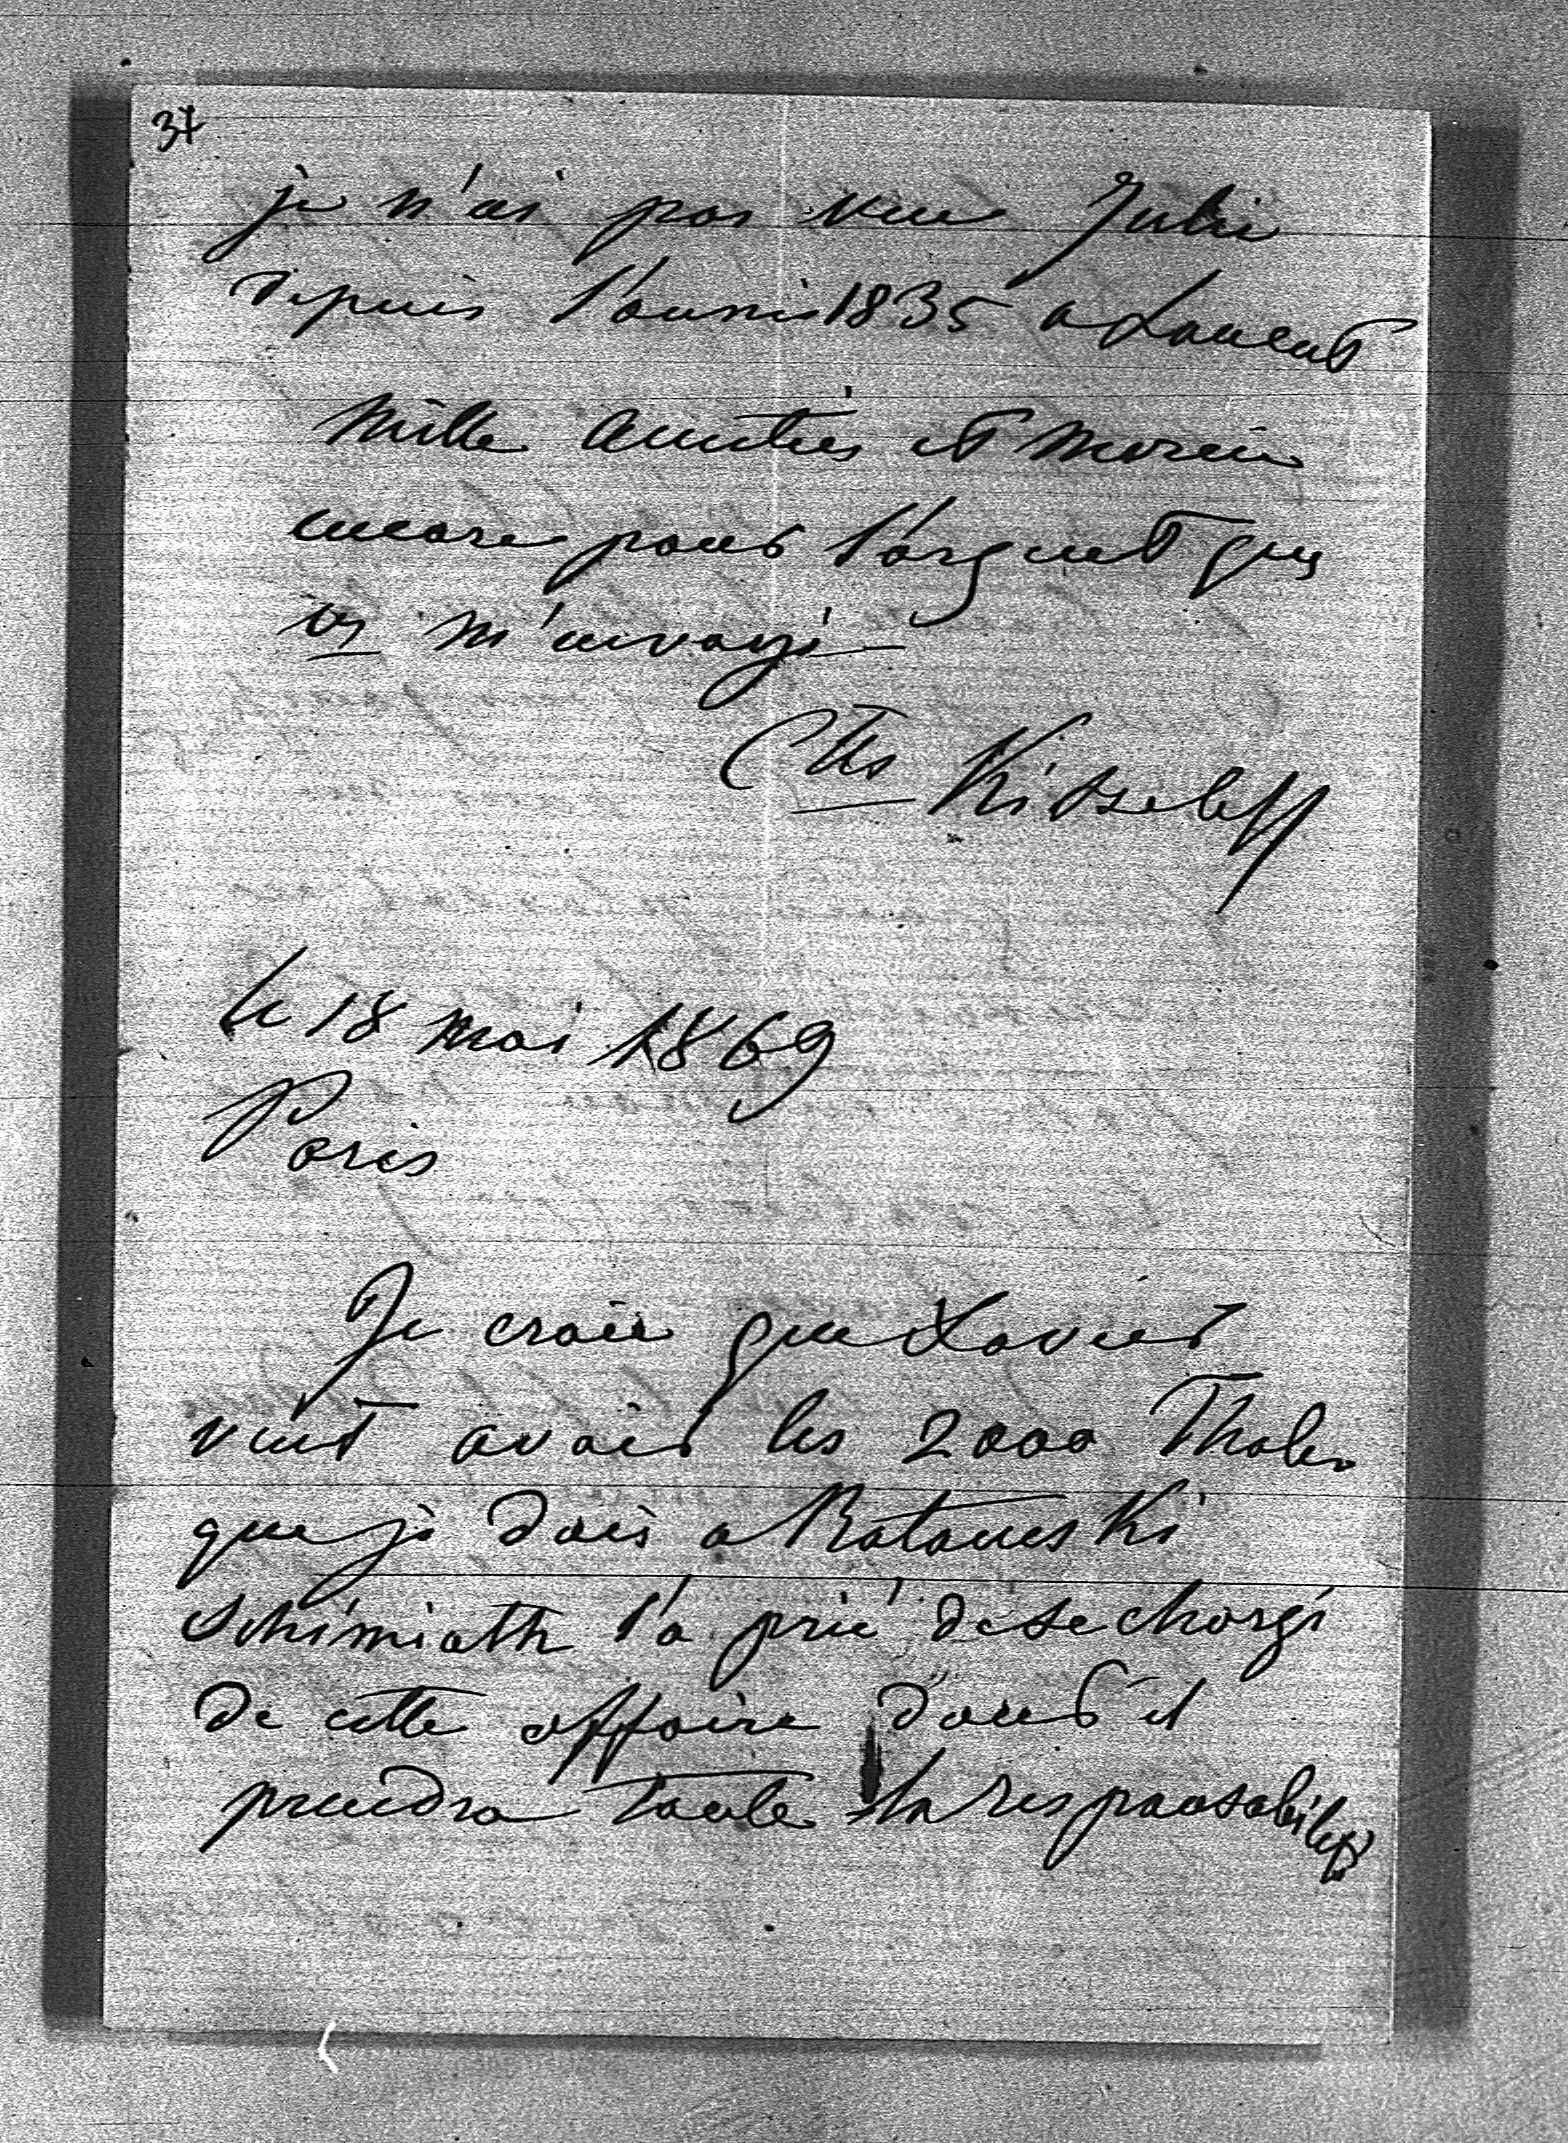 37
je n'ai pas vue Julie
depuis l'année 1835 a
Mille amitiés et merci
encore pour l'argent que
vs m'envoyé
Ctss Kisseleff
le 18 mai 1869
Paris
Je crois que Xavier
veut avoir les 2000 Thaler
que je dois a
l'a prié de se chargé
de cette affaire dont il
prendra toute la responsabilité